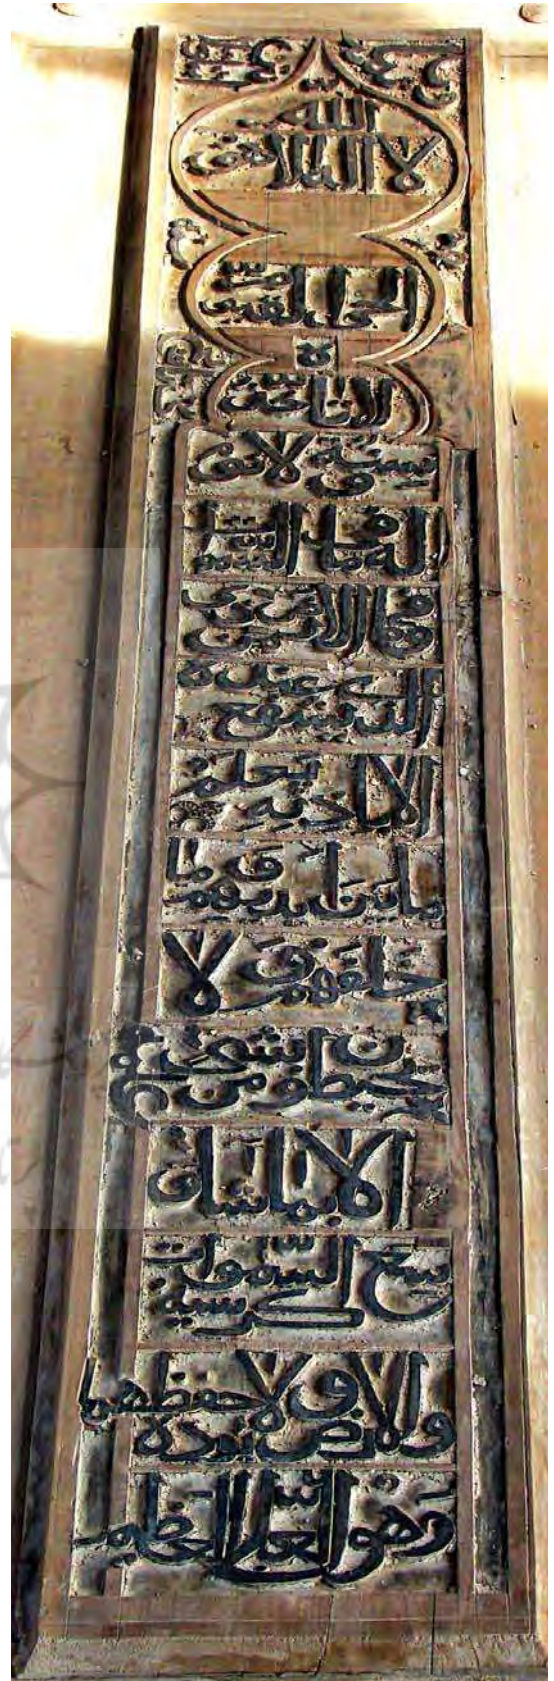 الله
لا اله الا هو
الحي القيوم
لا تاخذه
سنة و لا نوم
له ما في السموات
و ما في الارض من
الذي يشفع عنده
الا باذنه يعلم
ما بين ايديهم و ما
خلفهم و لا
يحيطون بشيء من
الا بما شاء و
سع كرسيه السموات
و الارض و لا يوده حفظهما
و هو العلي العظيم